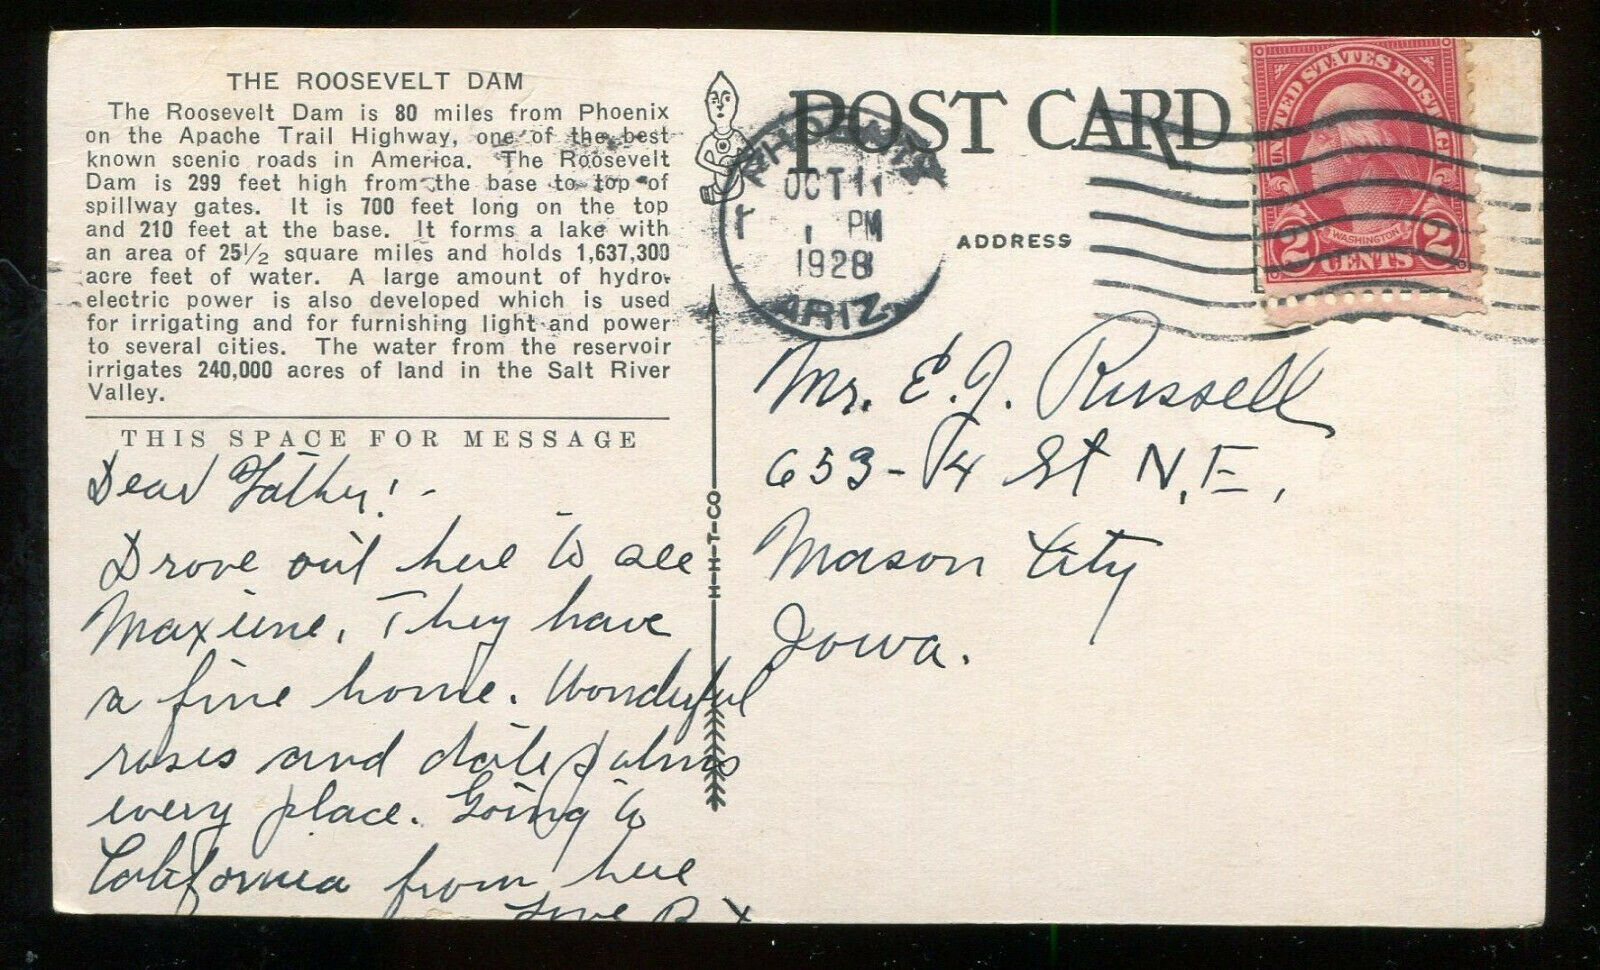 THE ROOSEVELT DAM
The Roosevelt Dam is 80 miles from Phoenix
on the Apache Trail Highway, one of the best
known scenic roads in America. The Roosevelt
Dam is 299 feet high from the base to top of
spillway gates. It is 700 feet long on the top
and 210 feet at the base. It forms a lake with
an area of 25½ square miles and holds 1,637,300
acre feet of water. A large amount of hydro-
electric power is also developed which is used
for irrigating and for furnishing light and power
to several cities. The water from the reservoir
irrigates 240,000 acres of land in the Salt River
Valley.
THIS SPACE FOR MESSAGE
Dear Father! -
Drove out here to see
Maxine. They have
a fine home. Wonderful
roses and date palms
every place. Going to
California from here
Love
H-H-T-CO
POST CARD
ADDRESS
OCT 11
PM
1928
ARIZ.
UNITED STATES POSTAGE
WASHINGTON
2 CENTS 2
Mr. E. J. Russell
653-14 St N.E.,
Mason City
Iowa.